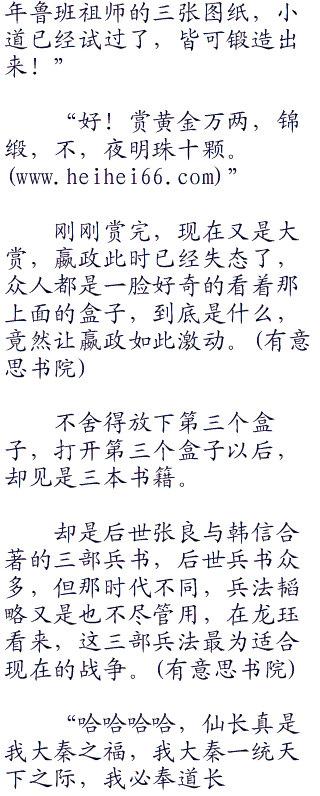 年鲁班祖师的三张图纸，小
道已经试过了，皆可锻造出
来！”
“好！赏黄金万两，锦
缎，不，夜明珠十颗。
(www.heihei66.com)”
刚刚赏完，现在又是大
赏，嬴政此时已经失态了，
众人都是一脸好奇的看着那
上面的盒子，到底是什么，
竟然让嬴政如此激动。(有意
思书院)
不舍得放下第三个盒
子，打开第三个盒子以后，
却见是三本书籍。
却是后世张良与韩信合
著的三部兵书，后世兵书众
多，但那时代不同，兵法韬
略又是也不尽管用，在龙珏
看来，这三部兵法最为适合
现在的战争。(有意思书院)
“哈哈哈哈，仙长真是
我大秦之福，我大秦一统天
下之际，我必奉道长